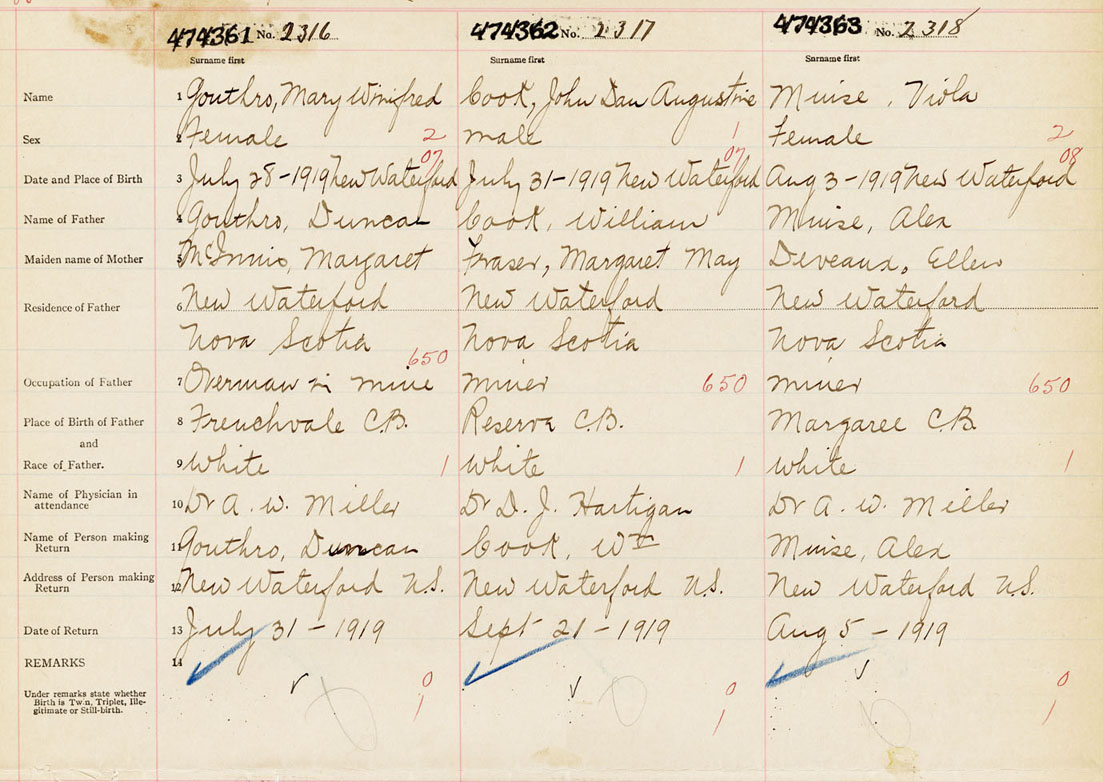 474361 No. 2316 474362 No. 2317 474363 No. 2318
Surname first Surname first Surname first
Name 1 Gouthro, Mary Winifred Cook, John Dan Augustine Muise, Viola
Sex 2 Female 2 male 1 Female 2
07 07 08
Date and Place of Birth 3 July 28-1919 New Waterford July 31-1919 New Waterford Aug 3-1919 New Waterford
Name of Father 4 Gouthro, Duncan Cook, William Muise, Alex
Maiden name of Mother 5 McInnis, Margaret Fraser, Margaret May Deveaux, Ellen
Residence of Father 6 New Waterford New Waterford New Waterford
Nova Scotia Nova Scotia Nova Scotia
650
Occupation of Father 7 Overman in mine miner 650 miner 650
Place of Birth of Father 8 Frenchvale C.B. Reserve C.B. Margaree C.B.
and
Race of Father. 9 White 1 White 1 White 1
Name of Physician in
attendance 10 Dr A. W. Miller Dr D. J. Hartigan Dr A. W. Miller
Name of Person making
Return 11 Gouthro, Duncan Cook, Wm Muise, Alex
Address of Person making
Return 12 New Waterford N.S. New Waterford N.S. New Waterford N.S.
Date of Return 13 July 31-1919 Sept 21-1919 Aug 5-1919
REMARKS 14
0 0 0
Under remarks state whether
Birth is Twin, Triplet, Ille-
gitimate or Still-birth.
1 1 1